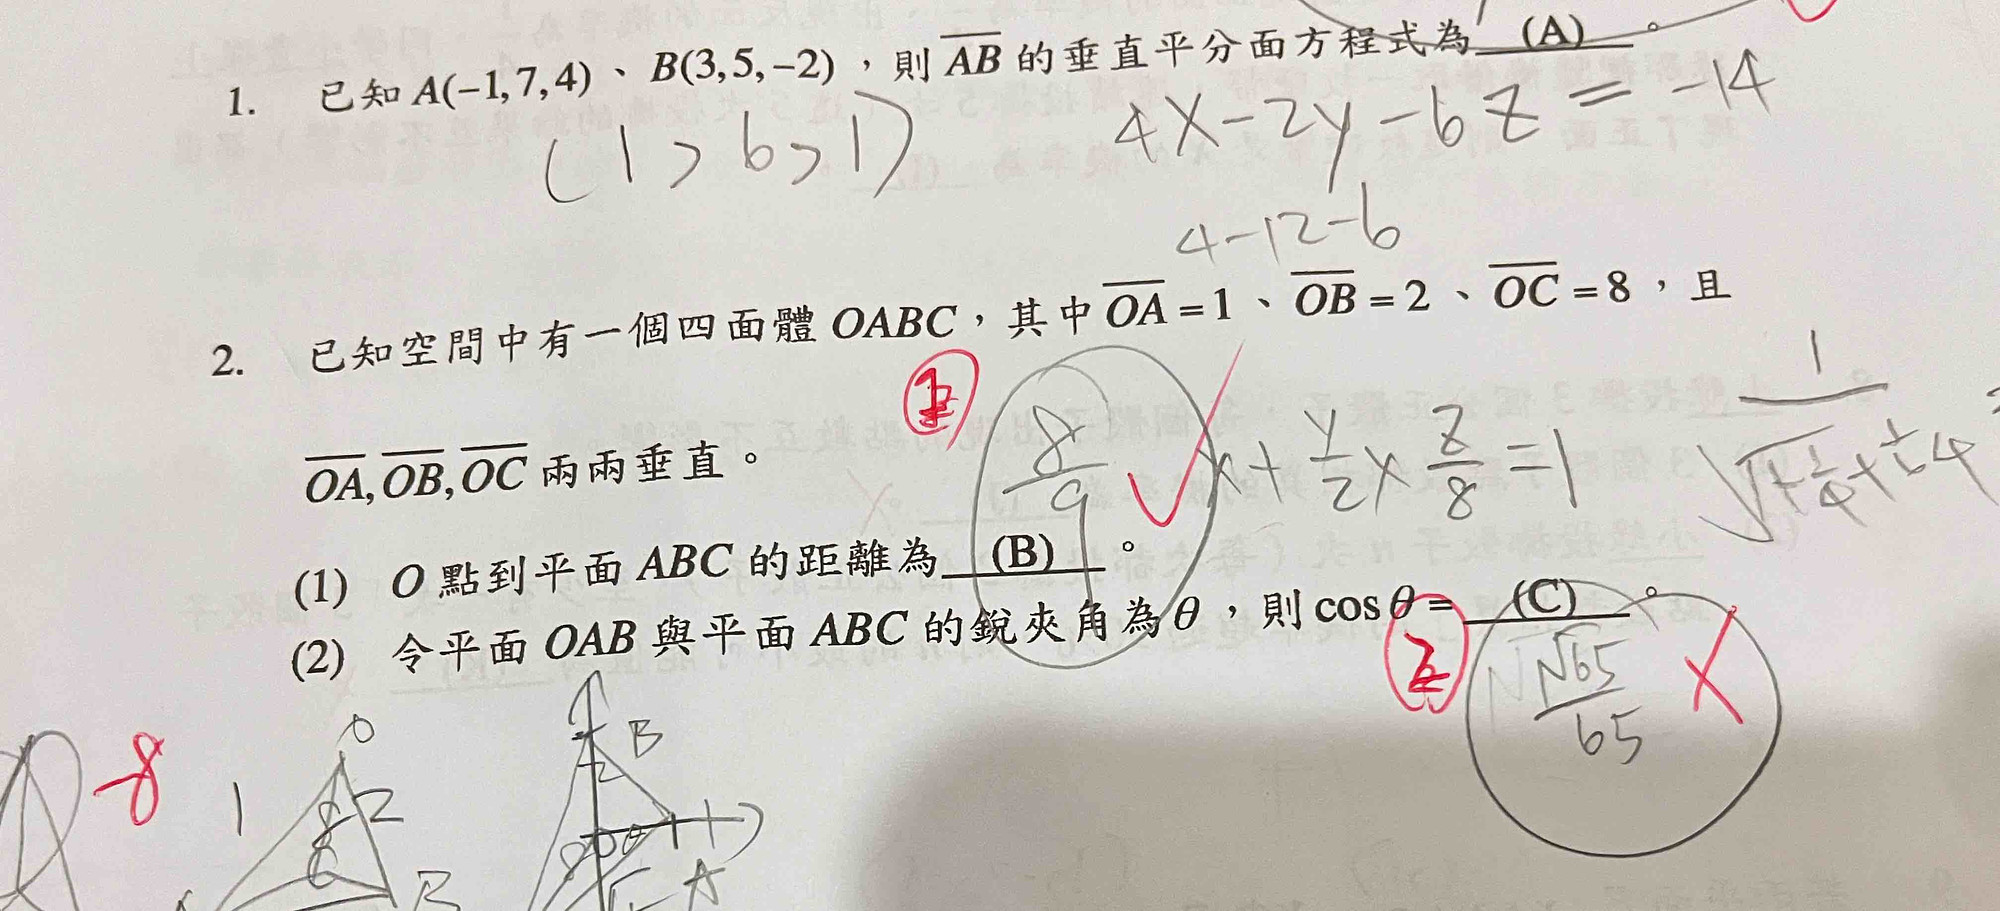 1. 已知 A(-1,7,4)、B(3,5,-2)，則 \overline{AB} 的垂直平分面方程式為 (A) 。
(1,6,1) 4x-2y-6z=-14
4-12-6
2. 已知空間中有一個四面體 OABC，其中 \overline{OA}=1、\overline{OB}=2、\overline{OC}=8，且
\overline{OA}, \overline{OB}, \overline{OC} 兩兩垂直。
8/9 x+y/2+z/8=1
(1) O 點到平面 ABC 的距離為 (B) 。
(2) 令平面 OAB 與平面 ABC 的銳夾角為 θ，則 cosθ= (C) 。
√65/65
-8
O
1 2
B
B
2
A